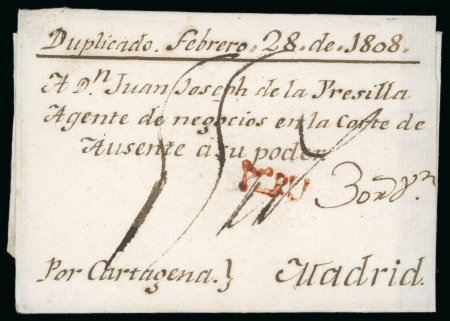 Duplicado. Febrero. 28. de. 1808.
A Dn. Juan Joseph de la Presilla
Agente de negocios en la Corte de
Ausente a su poder
PERU
Por Cartagena.} Madrid.